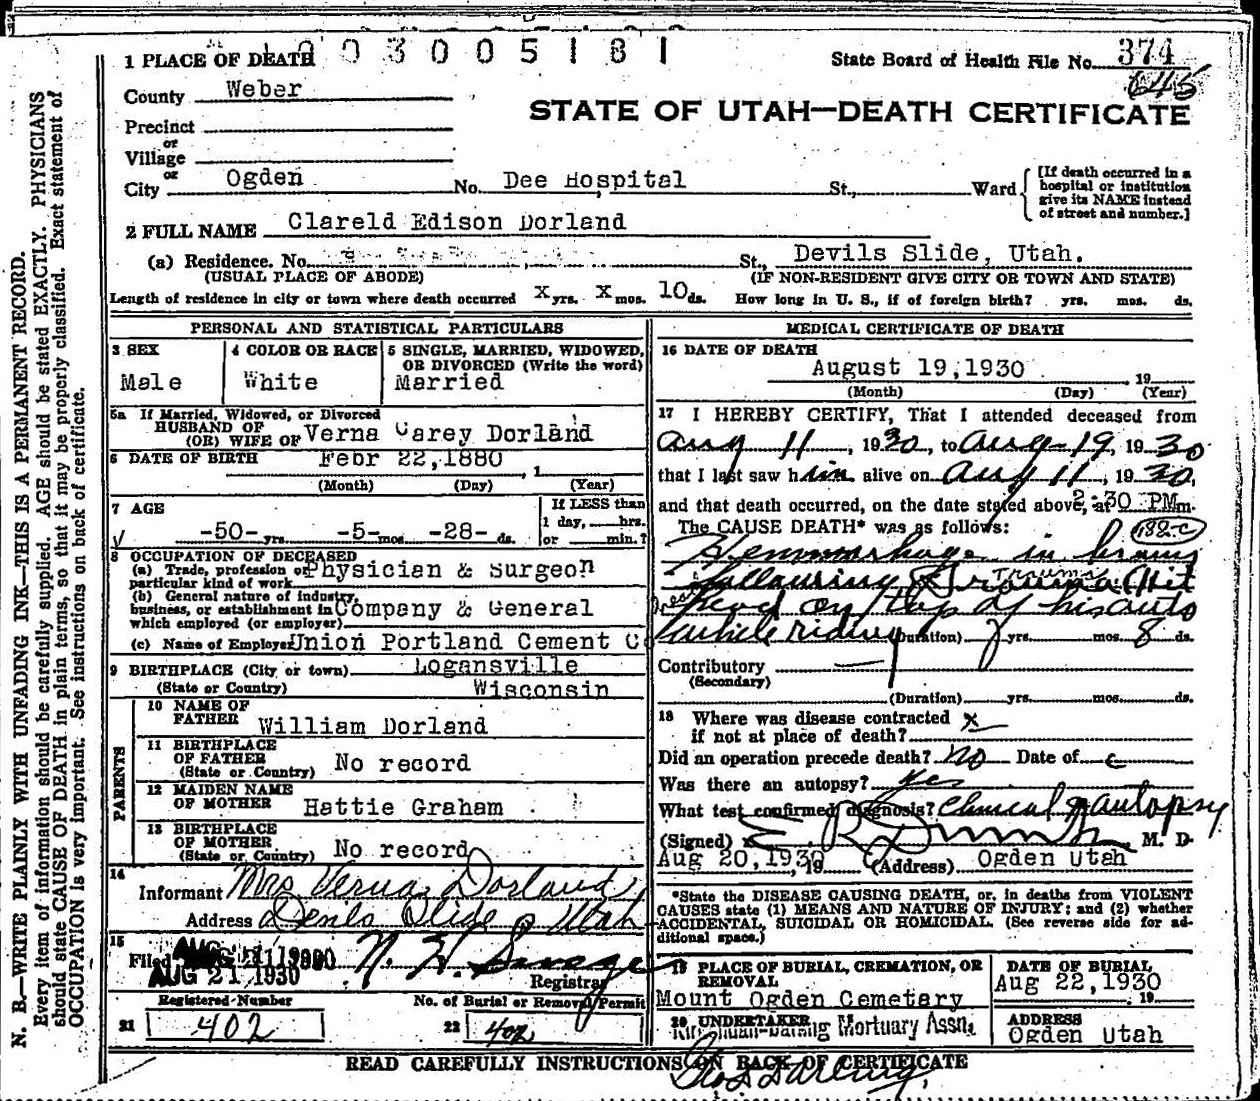 1003005181
1 PLACE OF DEATH
State Board of Health File No. 374
645
County Weber
STATE OF UTAH—DEATH CERTIFICATE
Precinct
or
Village
or
City Ogden No. Dee Hospital St., Ward
[If death occurred in a hospital or institution give its NAME instead of street and number.]
2 FULL NAME Clareld Edison Dorland
(a) Residence. No. St., Devils Slide, Utah.
(USUAL PLACE OF ABODE) (IF NON-RESIDENT GIVE CITY OR TOWN AND STATE)
Length of residence in city or town where death occurred X yrs. X mos. 10 ds. How long in U. S., if of foreign birth? yrs. mos. ds.
PERSONAL AND STATISTICAL PARTICULARS
3 SEX
Male
4 COLOR OR RACE
White
5 SINGLE, MARRIED, WIDOWED, OR DIVORCED (Write the word)
Married
5a If Married, Widowed, or Divorced
HUSBAND OF
(OR) WIFE OF Verna Carey Dorland
6 DATE OF BIRTH Febr 22,1880 , 1
(Month) (Day) (Year)
7 AGE
-50- yrs. -5- mos. -28- ds.
If LESS than
1 day, hrs.
or min.?
8 OCCUPATION OF DECEASED
(a) Trade, profession or
particular kind of work Physician & Surgeon
(b) General nature of industry,
business, or establishment in Company & General
which employed (or employer)
(c) Name of Employer Union Portland Cement Co
9 BIRTHPLACE (City or town) Logansville
(State or Country) Wisconsin
PARENTS
10 NAME OF
FATHER William Dorland
11 BIRTHPLACE
OF FATHER No record
(State or Country)
12 MAIDEN NAME
OF MOTHER Hattie Graham
13 BIRTHPLACE
OF MOTHER No record
(State or Country)
14
Informant Mrs Verna Dorland
Address Devils Slide, Utah
15
Filed AUG 21 1930 N. H. Savage
AUG 21 1930 Registrar
Registered Number No. of Burial or Removal Permit
21 402 22 402
MEDICAL CERTIFICATE OF DEATH
16 DATE OF DEATH
August 19,1930 , 19
(Month) (Day) (Year)
17 I HEREBY CERTIFY, That I attended deceased from
Aug 11, 1930, to Aug 19, 1930
that I last saw him alive on Aug 11, 1930,
and that death occurred, on the date stated above, at 2:30 PM m.
The CAUSE DEATH* was as follows: 188-c
Hemmorhage in brain
following Trauma Trauma (Hit
head on top of his auto
while riding (Duration) yrs. mos. 8 ds.
Contributory
(Secondary)
(Duration) yrs. mos. ds.
18 Where was disease contracted x
if not at place of death?
Did an operation precede death? No Date of
Was there an autopsy? yes
What test confirmed diagnosis? Clinical & autopsy
(Signed) M. D.
Aug 20,1930, 19 (Address) Ogden Utah
*State the DISEASE CAUSING DEATH, or, in deaths from VIOLENT
CAUSES state (1) MEANS AND NATURE OF INJURY; and (2) whether
ACCIDENTAL, SUICIDAL OR HOMICIDAL. (See reverse side for ad-
ditional space.)
19 PLACE OF BURIAL, CREMATION, OR
REMOVAL
Mount Ogden Cemetary
DATE OF BURIAL
Aug 22,1930
, 19
20 UNDERTAKER
Mortuary Assn.
ADDRESS
Ogden Utah
READ CAREFULLY INSTRUCTIONS ON BACK OF CERTIFICATE
N. B.—WRITE PLAINLY WITH UNFADING INK—THIS IS A PERMANENT RECORD.
Every item of information should be carefully supplied. AGE should be stated EXACTLY. PHYSICIANS
should state CAUSE OF DEATH in plain terms, so that it may be properly classified. Exact statement of
OCCUPATION is very important. See instructions on back of certificate.